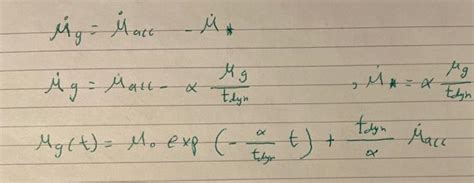 Ṁg = Ṁacc - Ṁ*
Ṁg = Ṁacc - α Mg/tdyn , Ṁ* = α Mg/tdyn
Mg(t) = M₀ exp (- α/tdyn t) + tdyn/α Ṁacc